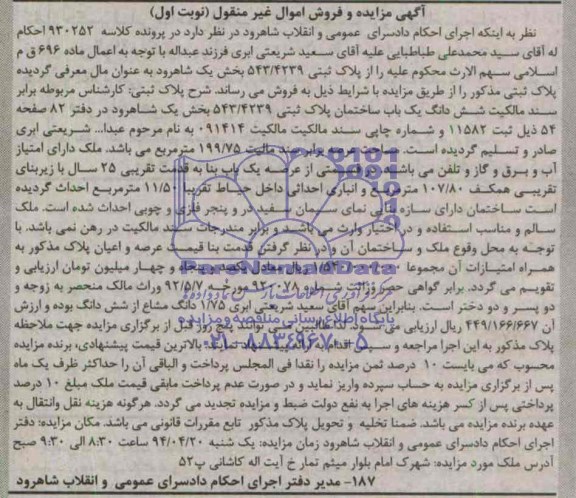 آگهی مزایده و فروش اموال غیر منقول (نوبت اول)
نظر به اینکه اجرای احکام دادسرای عمومی و انقلاب شاهرود در نظر دارد در پرونده کلاسه ۹۳۰۲۵۲ احکام
له آقای سید محمدعلی طباطبایی علیه آقای سعید شریعتی ابری فرزند عبداله با توجه به اعمال ماده ۶۹۶ ق م
اسلامی سهم الارث محکوم علیه را از پلاک ثبتی ۵۴۳/۴۲۳۹ بخش یک شاهرود به عنوان مال معرفی گردیده
پلاک ثبتی مذکور را از طریق مزایده با شرایط ذیل به فروش می رساند. شرح پلاک ثبتی: کارشناس مربوطه برابر
سند مالکیت شش دانگ یک باب ساختمان پلاک ثبتی ۵۴۳/۴۲۳۹ بخش یک شاهرود در دفتر ۸۲ صفحه
۵۴ ذیل ثبت ۱۱۵۸۲ و شماره چاپی سند مالکیت مالکیت ۰۹۱۴۱۴ به نام مرحوم عبدا... شریعتی ابری
صادر و تسلیم گردیده است. مساحت عرصه برابر سند مالیت ۱۹۹/۷۵ مترمربع می باشد. ملک دارای امتیاز
آب و برق و گاز و تلفن می باشد. در قسمتی از عرصه یک باب بنا به قدمت تقریبی ۲۵ سال با زیربنای
تقریبی همکف ۱۰۷/۸۰ مترمربع و انباری احداثی داخل حیاط تقریبا ۱۱/۵۰ مترمربع احداث گردیده
است ساختمان دارای سازه بنایی نمای سیمان سفید در و پنجر فلزی و چوبی احداث شده است. ملک
سالم و مناسب استفاده و در اختیار وارث می باشد و برابر مندرجات سند مالکیت در رهن نمی باشد. با
توجه به محل وقوع ملک و ساختمان آن و در نظر گرفتن قدمت بنا قیمت عرصه و اعیان پلاک مذکور به
همراه امتیازات آن مجموعا ریال معادل یکصد و پنجاه و چهار میلیون تومان ارزیابی و
تقویم می گردد. برابر گواهی حصر وراثت شماره ۹۲۰۰۷۸ مورخه ۹۲/۵/۷ وراث مالک منحصر به زوجه و
دو پسر و دو دختر است. بنابراین سهم آقای سعید شریعتی ابری ۱/۷۵ دانگ مشاع از شش دانگ بوده و ارزش
آن ۴۴۹/۱۶۶/۶۶۷ ریال ارزیابی می شود. لذا طالبین می توانند پنج روز قبل از برگزاری مزایده جهت ملاحظه
پلاک مذکور به این اجرا مراجعه و سپس اقدام به ارائه پیشنهاد نمایند. بالاترین قیمت پیشنهادی، برنده مزایده
محسوب که می بایست ۱۰ درصد ثمن مزایده را نقدا فی المجلس پرداخت و الباقی آن را حداکثر ظرف یک ماه
پس از برگزاری مزایده به حساب سپرده واریز نماید و در صورت عدم پرداخت مابقی قیمت ملک مبلغ ۱۰ درصد
پرداختی پس از کسر هزینه های اجرا به نفع دولت ضبط و مزایده تجدید می گردد. هرگونه هزینه نقل وانتقال به
عهده برنده مزایده می باشد. ضمنا تخلیه و تحویل پلاک مذکور تابع مقررات قانونی می باشد. مکان مزایده: دفتر
اجرای احکام دادسرای عمومی و انقلاب شاهرود زمان مزایده: یک شنبه ۹۴/۰۴/۲۰ ساعت ۸:۳۰ الی ۹:۳۰ صبح
آدرس ملک مورد مزایده: شهرک امام بلوار میثم تمار خ آیت اله کاشانی پ۵۲
۱۸۷- مدیر دفتر اجرای احکام دادسرای عمومی و انقلاب شاهرود
ParsNamadData
پایگاه اطلاع رسانی مناقصه و مزایده
۰۲۱-۸۸۳۴۹۶۷۰-۵